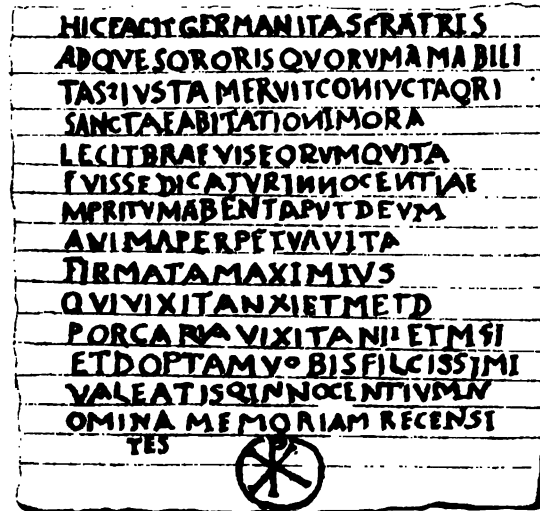 HICEACIT GERMANITAS FRATRIS
ADQVE SORORIS QVORVM AMABILI
TAS IVSTA MERVIT CONIVCTAQRI
SANCTAE ABITATIONIMORA
LECIT BRAEVIS EORVMQ VITA
FVISSE DICATVR INNOCENTIAE
MERITVM ABENT APVT DEVM
ANIMA PERPETVA VITA
FIRMATA MAXIMIVS
QVI VIXIT ANXI ET M ET D
PORCARIA VIXIT ANII ET M
ET D OPTAMVoBIS FILCISSIMI
VALEATIS Q INNOCENTIVM N
OMINA MEMORIAM RECENSI
TES